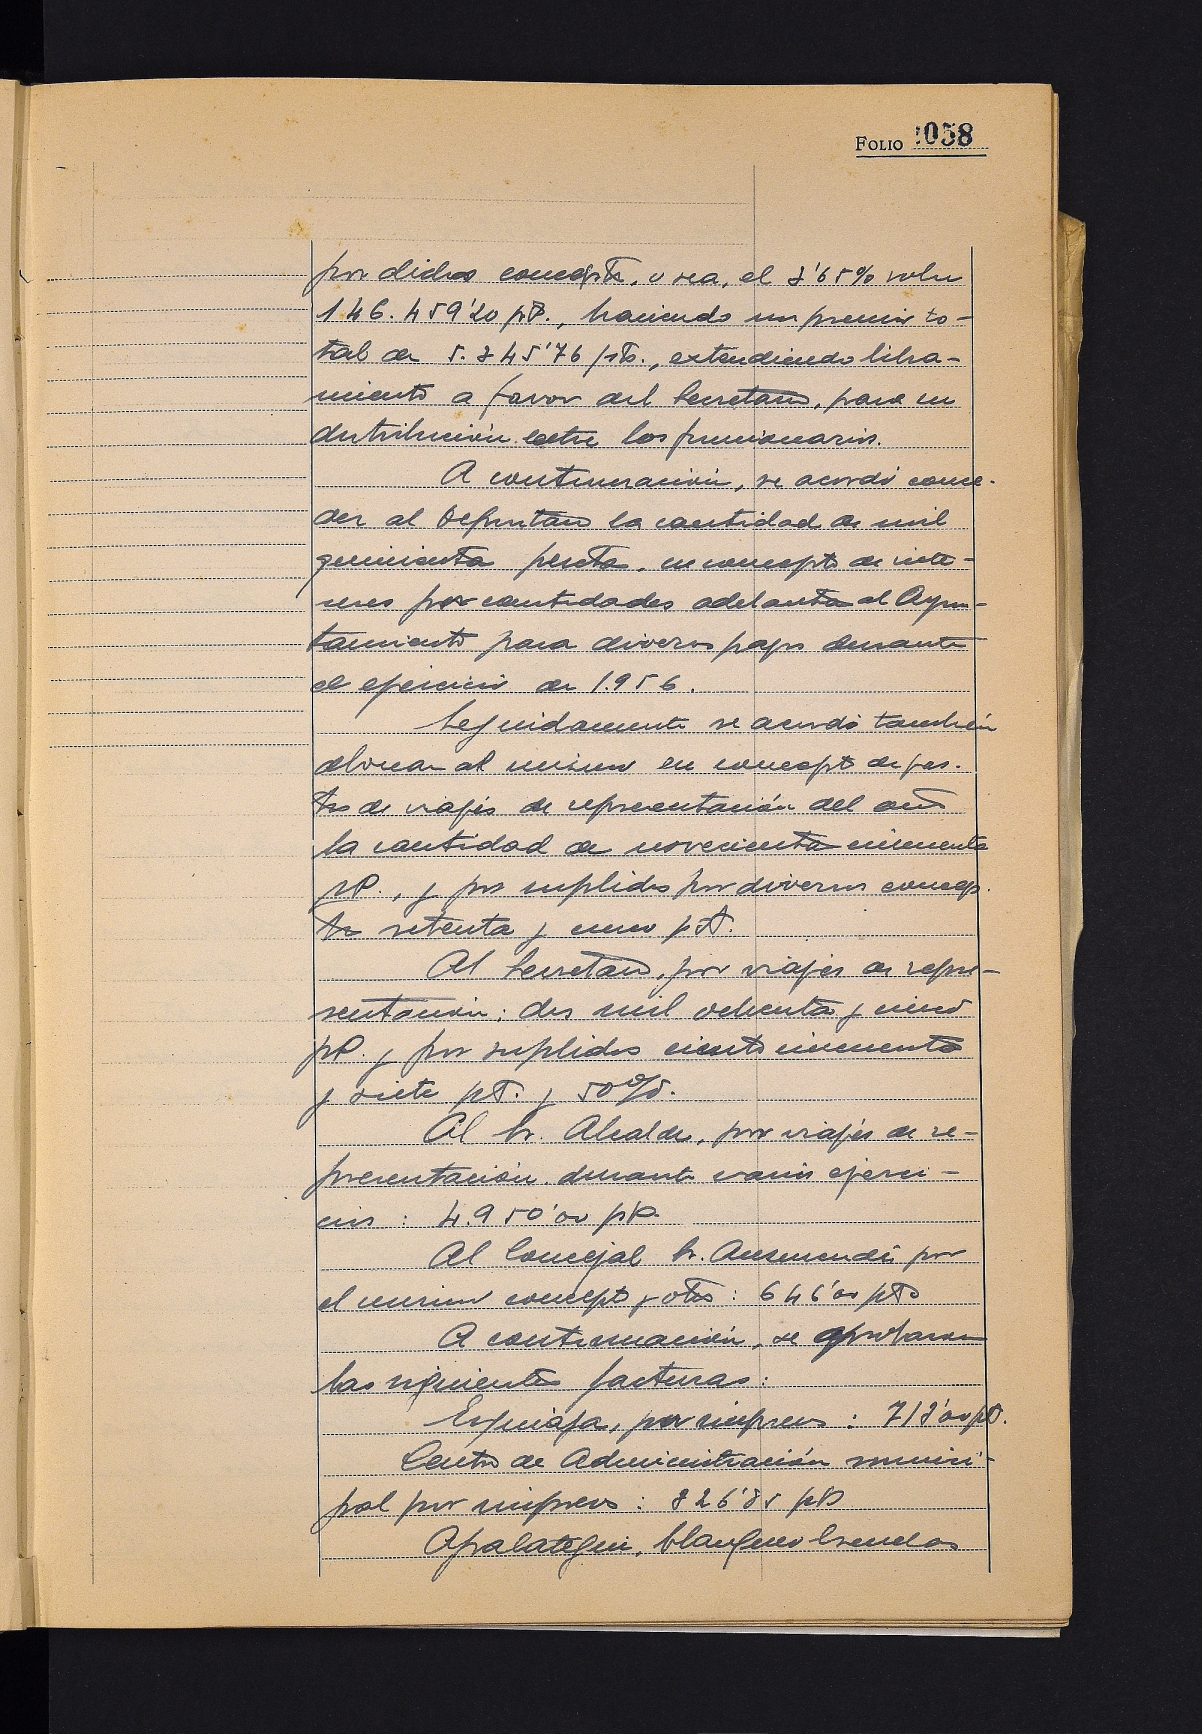 FOLIO 1058
por dichos conceptos, o sea, el 3'65% sobre
146.459'20 pts., haciendo un premio to-
tal de 5.345'76 pts., extendiendo libra-
miento a favor del Secretario, para su
distribución entre los funcionarios.
A continuación, se acordó conce-
der al Depositario la cantidad de mil
quinientas pesetas, en concepto de inte-
reses por cantidades adelantas al Ayun-
tamiento para diversos pagos durante
el ejercicio de 1.956.
Seguidamente se acordó también
abonar al mismo en concepto de gas-
tos de viajes de representación del año
la cantidad de novecientas cincuenta
pts., y por suplidos por diversos concep-
tos setenta y cinco pts.
Al Secretario, por viajes de repre-
sentación: dos mil ochenta y cinco
pts. y por suplidos ciento cincuenta
y siete pts. y 50%.
Al Sr. Alcalde, por viajes de re-
presentación durante varios ejerci-
cios: 4.950'00 pts.
Al Concejal Sr. Ausmendi por
el mismo concepto y otros: 646'00 pts
A continuación, se aprobaron
las siguientes facturas:
por impresos: 713'00 pts.
Centro de Administración munici-
pal por impresos: 326'85 pts
Apalategui, blanqueo